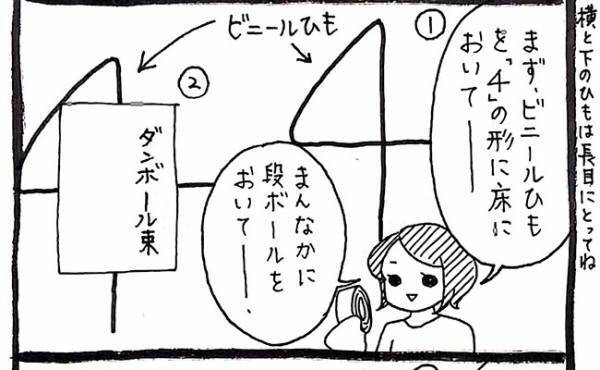 横と下のひもは長目にとってね
①
まず、ビニールひも
を「4」の形に床に
おいて――
ビニールひも
②
ダンボール束
まんなかに
段ボールを
おいて――、